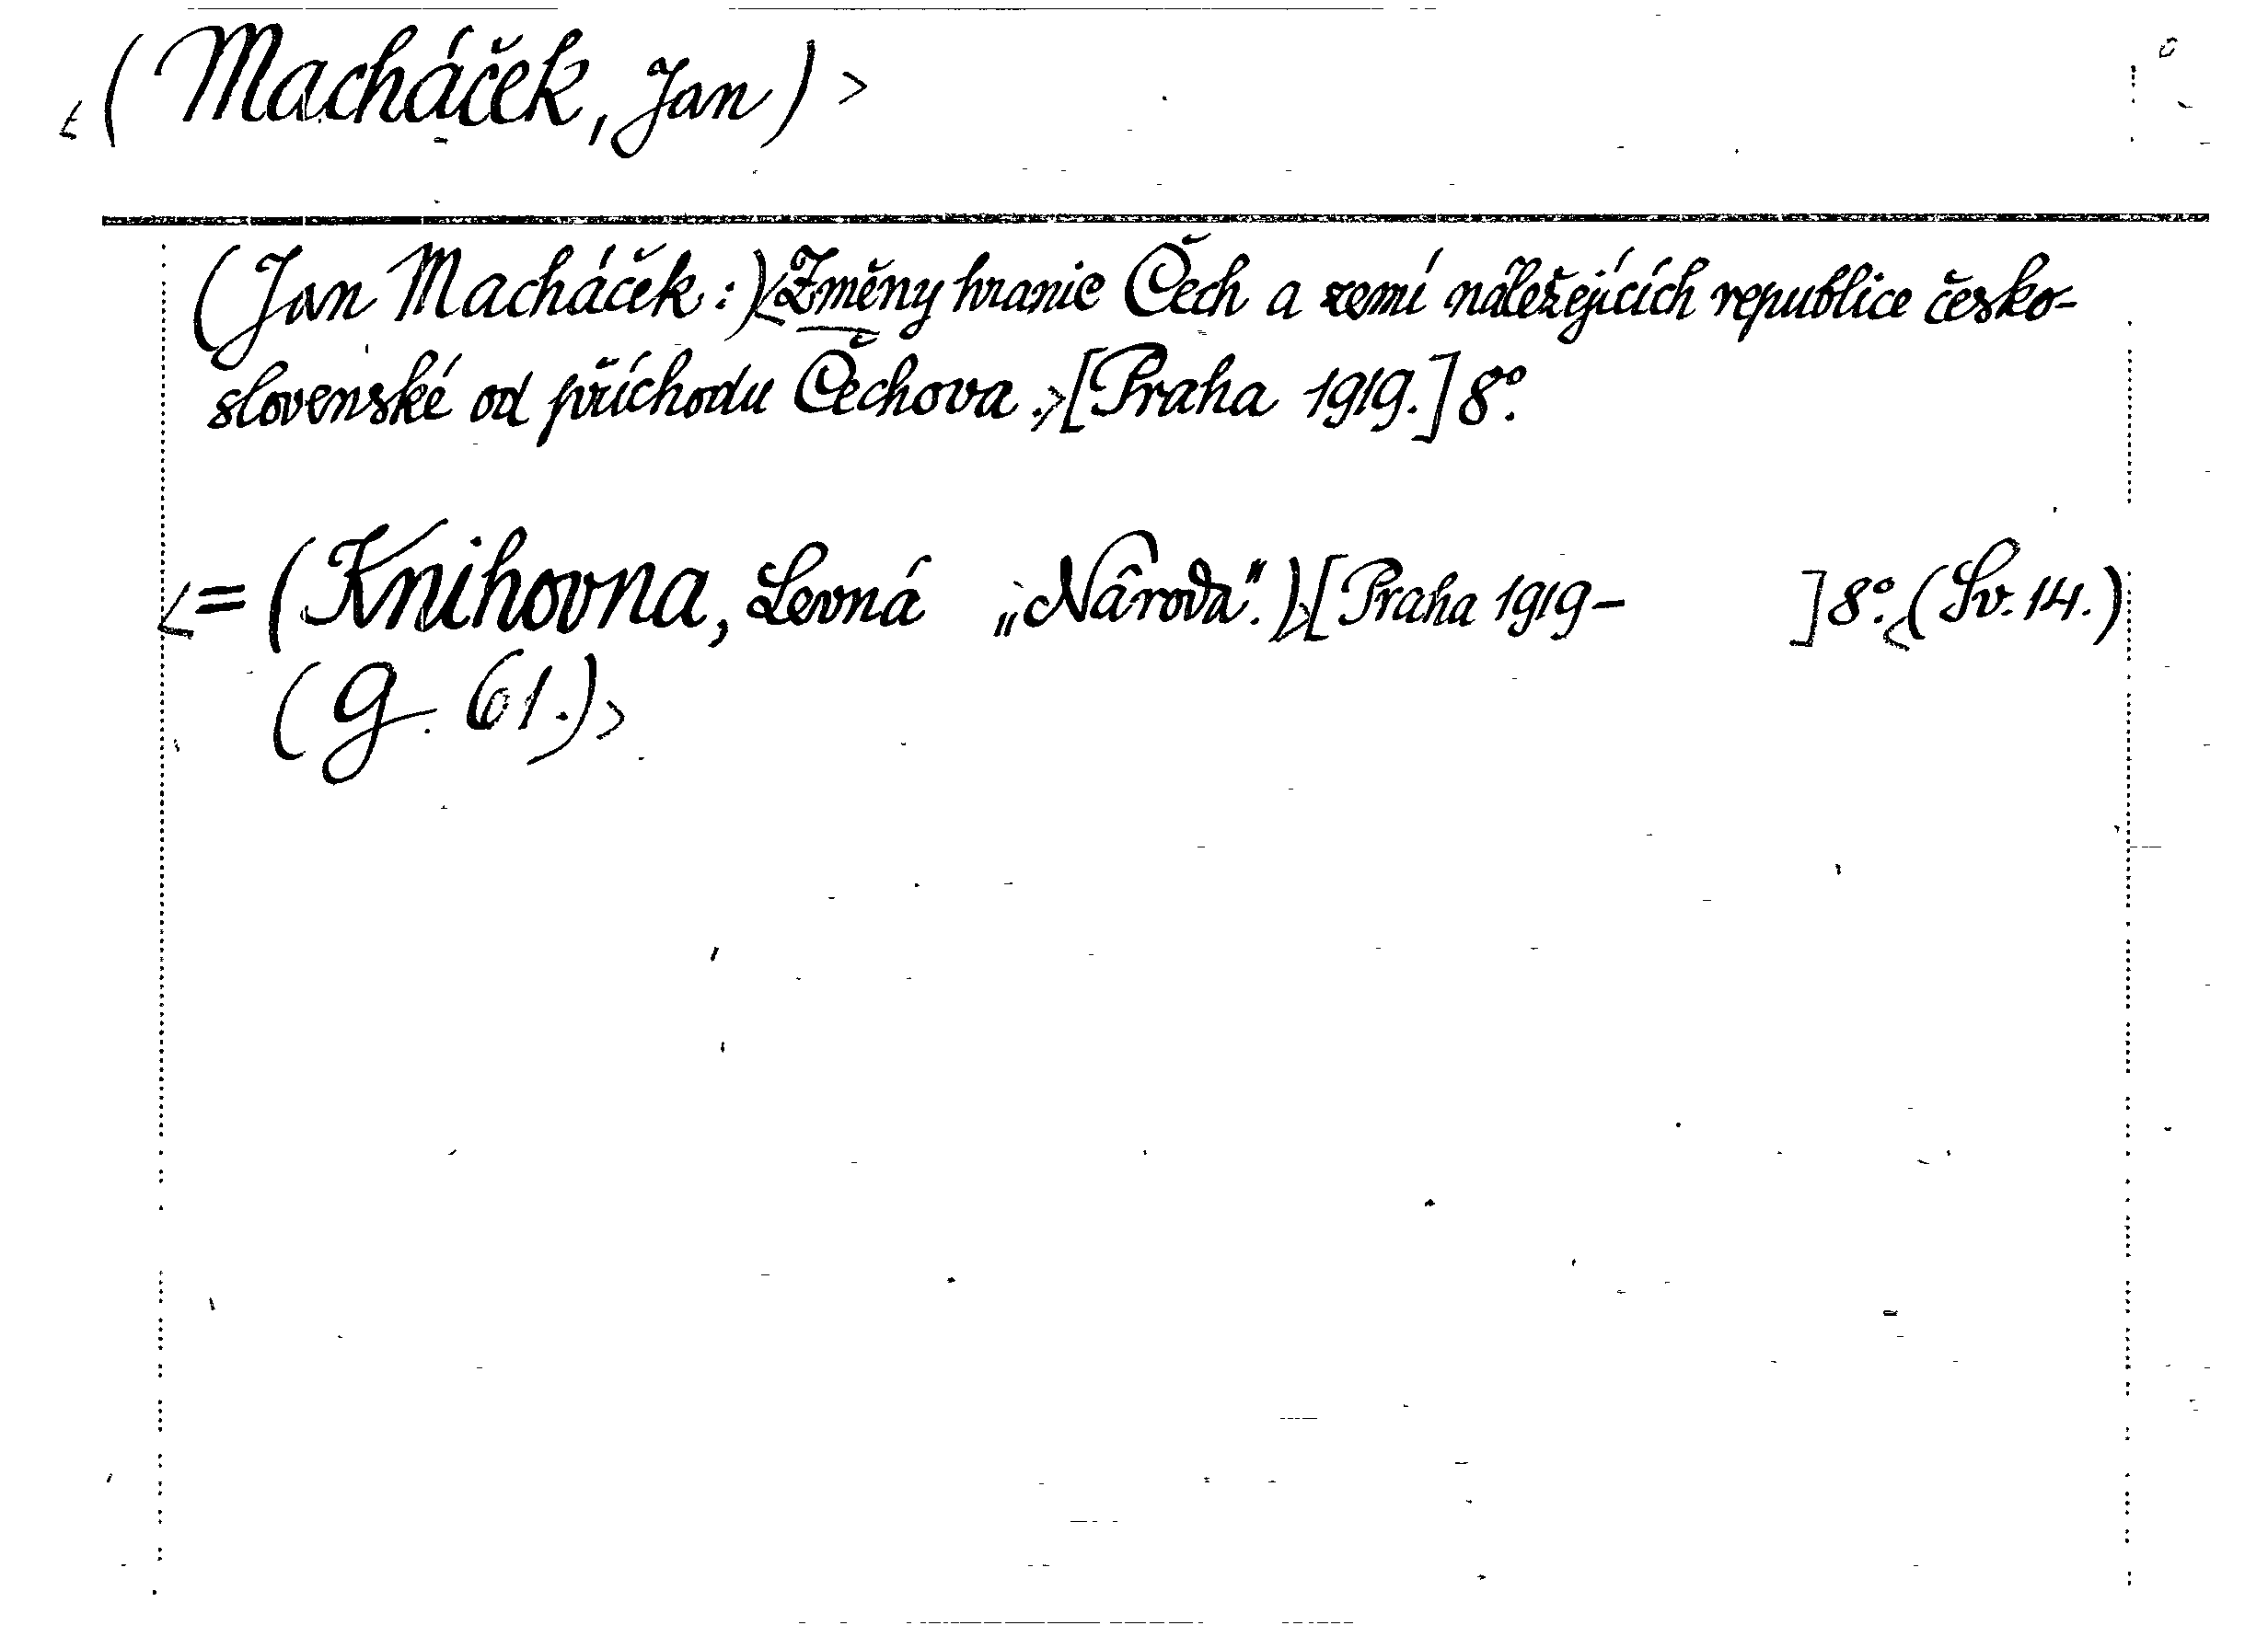 <(Macháček, Jan)>
(Jan Macháček:)<Změny hranic Čech a zemí náležejících republice česko-
slovenské od příchodu Čechova.>[Praha 1919.] 8°.
<=(Knihovna, Levná „Národa".)>[Praha 1919- ] 8°.<(Sv. 14.)
(g. 61.)>